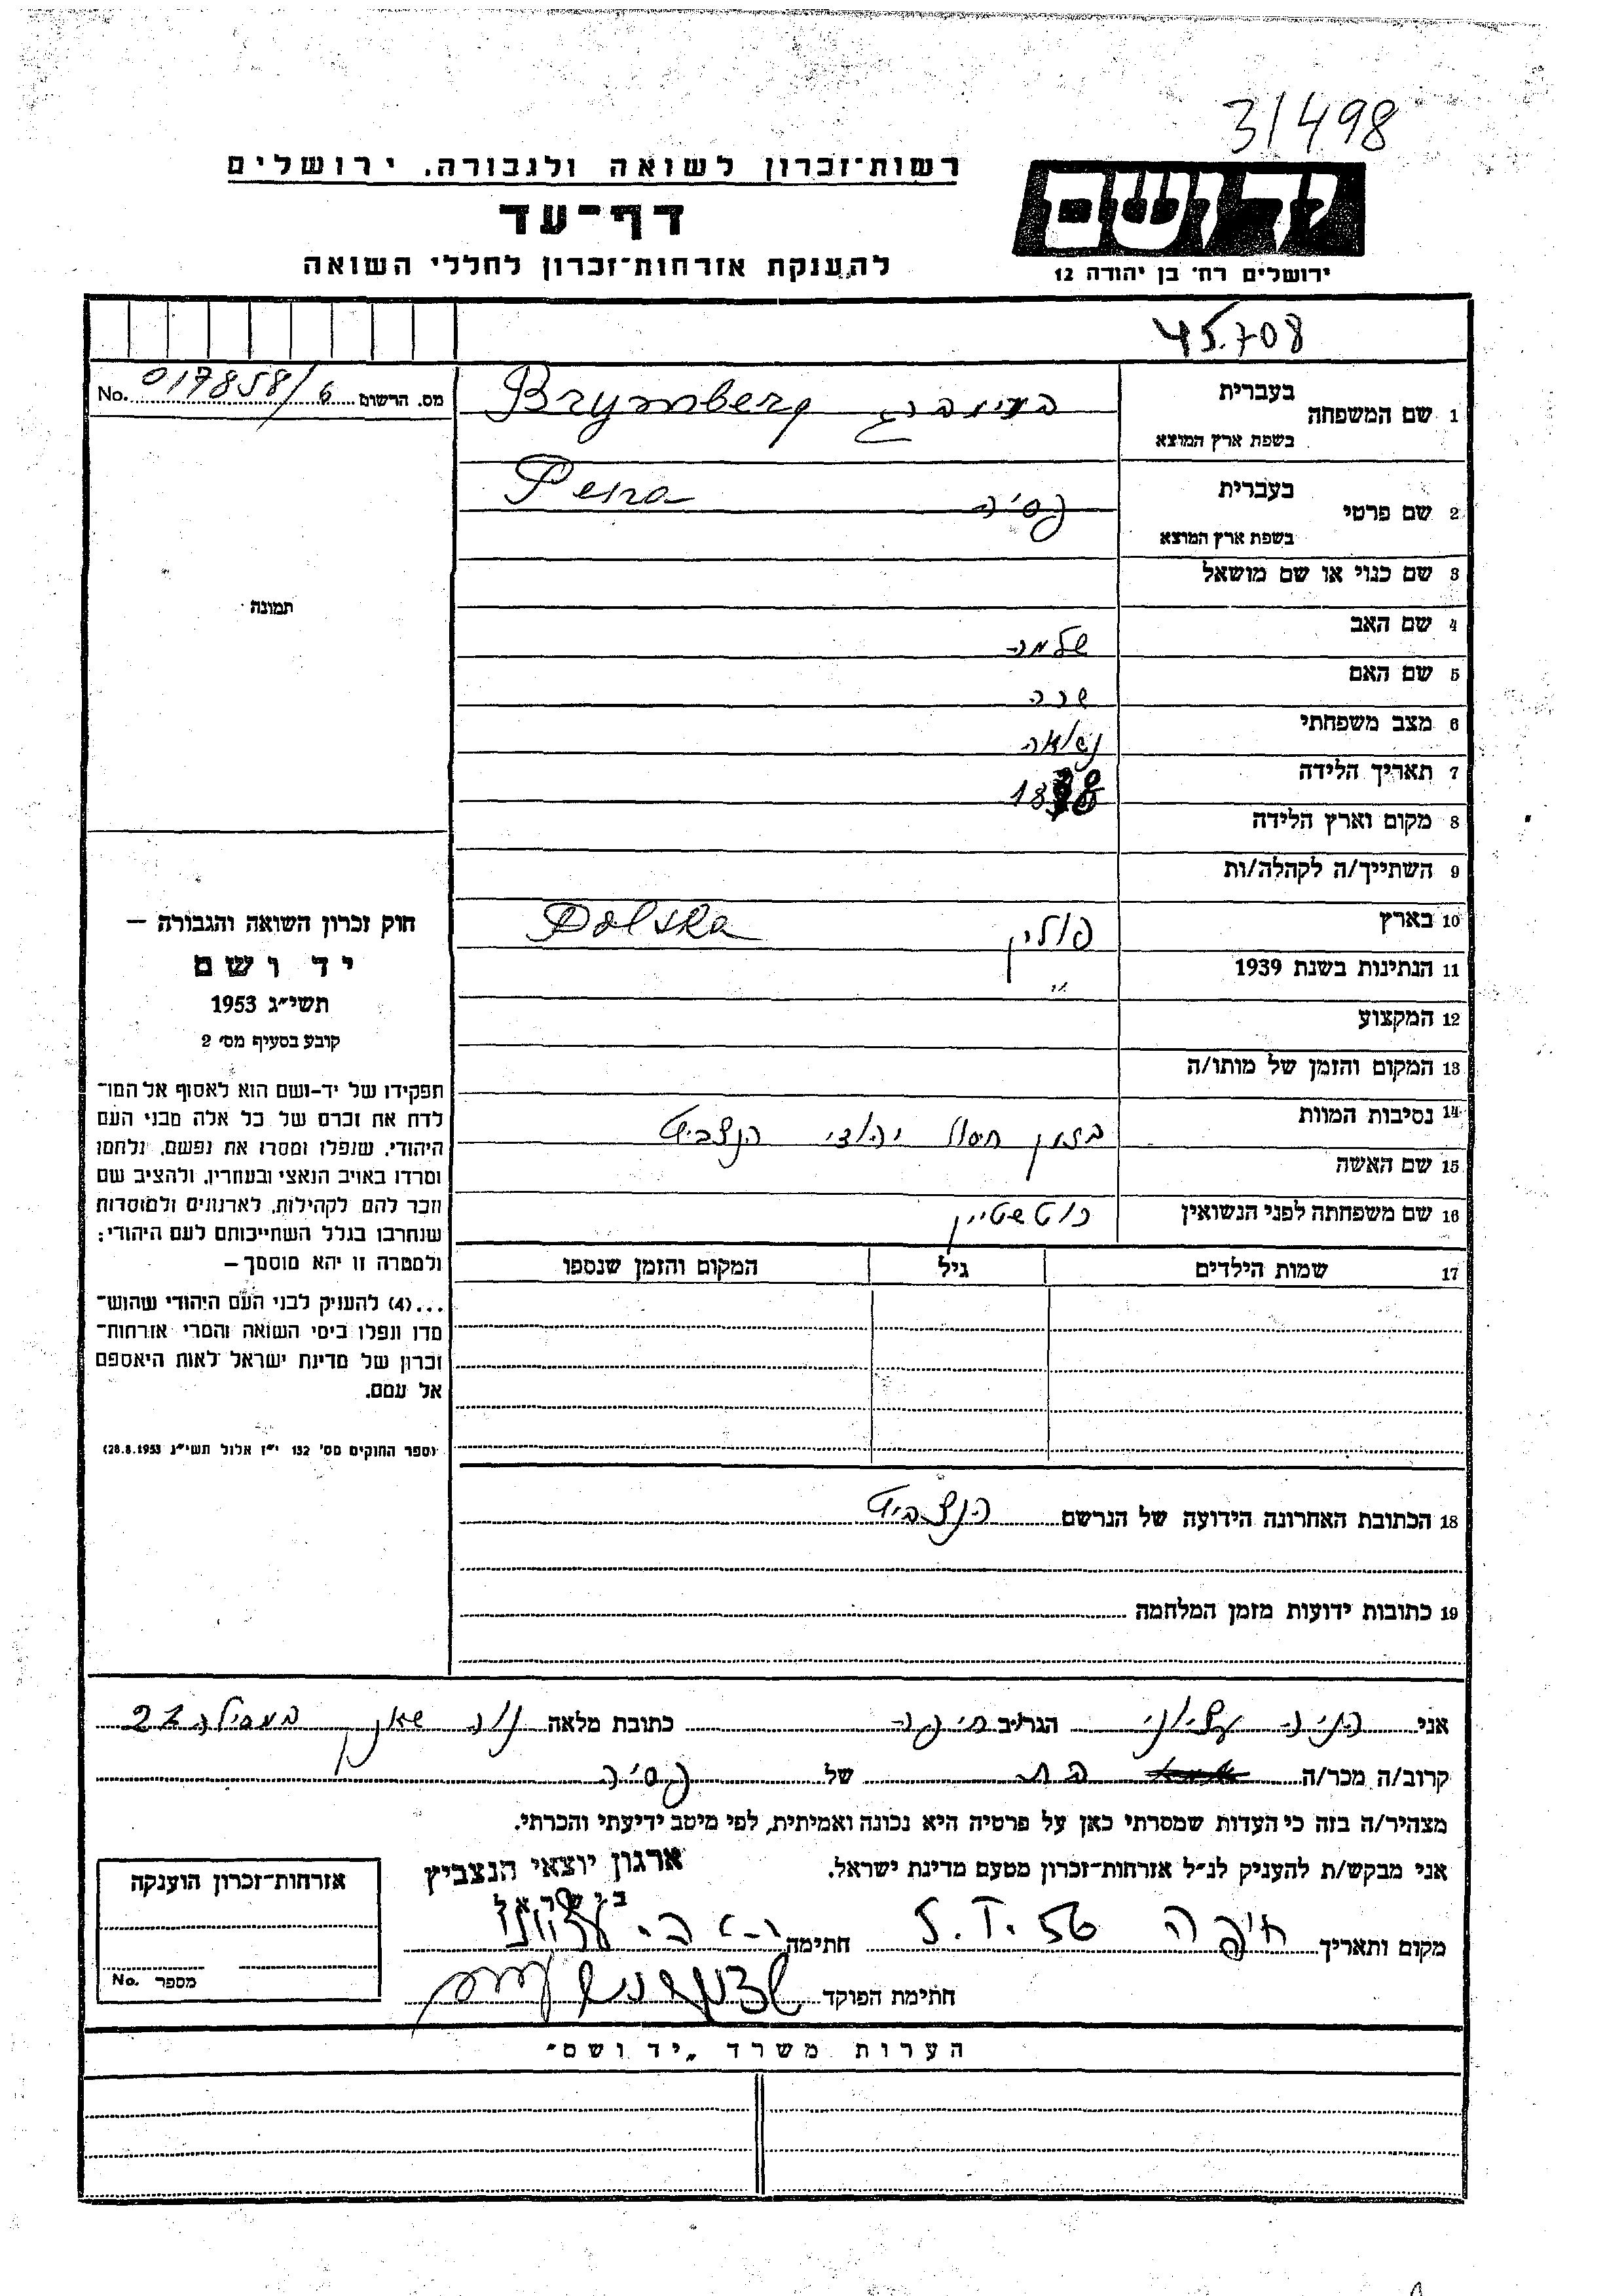 31498
רשות־זכרון לשואה ולגבורה, ירושלים
דף־עד
להענקת אזרחות־זכרון לחללי השואה
יד ושם
ירושלים רח׳ בן יהודה 12
45.708
מס. הרשום 017858/6 No.
1 שם המשפחה בעברית
בשפת ארץ המוצא
Brymberg
2 שם פרטי בעברית פסיה
בשפת ארץ המוצא
Pesia
תמונה
3 שם כנוי או שם מושאל
4 שם האב שלמה
5 שם האם שרה
6 מצב משפחתי נשואה
7 תאריך הלידה
8 מקום וארץ הלידה
9 השתייך/ה לקהלה/ות
10 בארץ פולין Polska
11 הנתינות בשנת 1939 "
12 המקצוע
13 המקום והזמן של מותו/ה
14 נסיבות המוות בזמן חסול יהודי הנצביץ
15 שם האשה
16 שם משפחתה לפני הנשואין רוטשטיין
17 שמות הילדים גיל המקום והזמן שנספו
חוק זכרון השואה והגבורה —
יד ושם
תשי״ג 1953
קובע בסעיף מס׳ 2
תפקידו של יד-ושם הוא לאסוף אל המו־
לדת את זכרם של כל אלה מבני העם
היהודי, שנפלו ומסרו את נפשם, נלחמו
ומרדו באויב הנאצי ובעוזריו, ולהציב שם
וזכר להם לקהילות, לארגונים ולמוסדות
שנחרבו בגלל השתייכותם לעם היהודי;
ולמטרה זו יהא מוסמך —
...(4) להעניק לבני העם היהודי שהוש־
מדו ונפלו בימי השואה והמרי אזרחות־
זכרון של מדינת ישראל לאות היאספם
אל עמם.
(ספר החוקים מס׳ 132 י״ז אלול תשי״ג 28.8.1953)
18 הכתובת האחרונה הידועה של הנרשם הנצביץ
19 כתובות ידועות מזמן המלחמה
אני הגר/ב חיפה כתובת מלאה נוה שאנן 22
קרוב/ה מכר/ה בת של פסיה
מצהיר/ה בזה כי העדות שמסרתי כאן על פרטיה היא נכונה ואמיתית, לפי מיטב ידיעתי והכרתי.
אני מבקש/ת להעניק לנ״ל אזרחות־זכרון מטעם מדינת ישראל.
ארגון יוצאי הנצביץ
בישראל
מקום ותאריך חיפה 5.I.56 חתימה
חתימת הפוקד
אזרחות־זכרון הוענקה
מספר No.
הערות משרד „יד ושם״